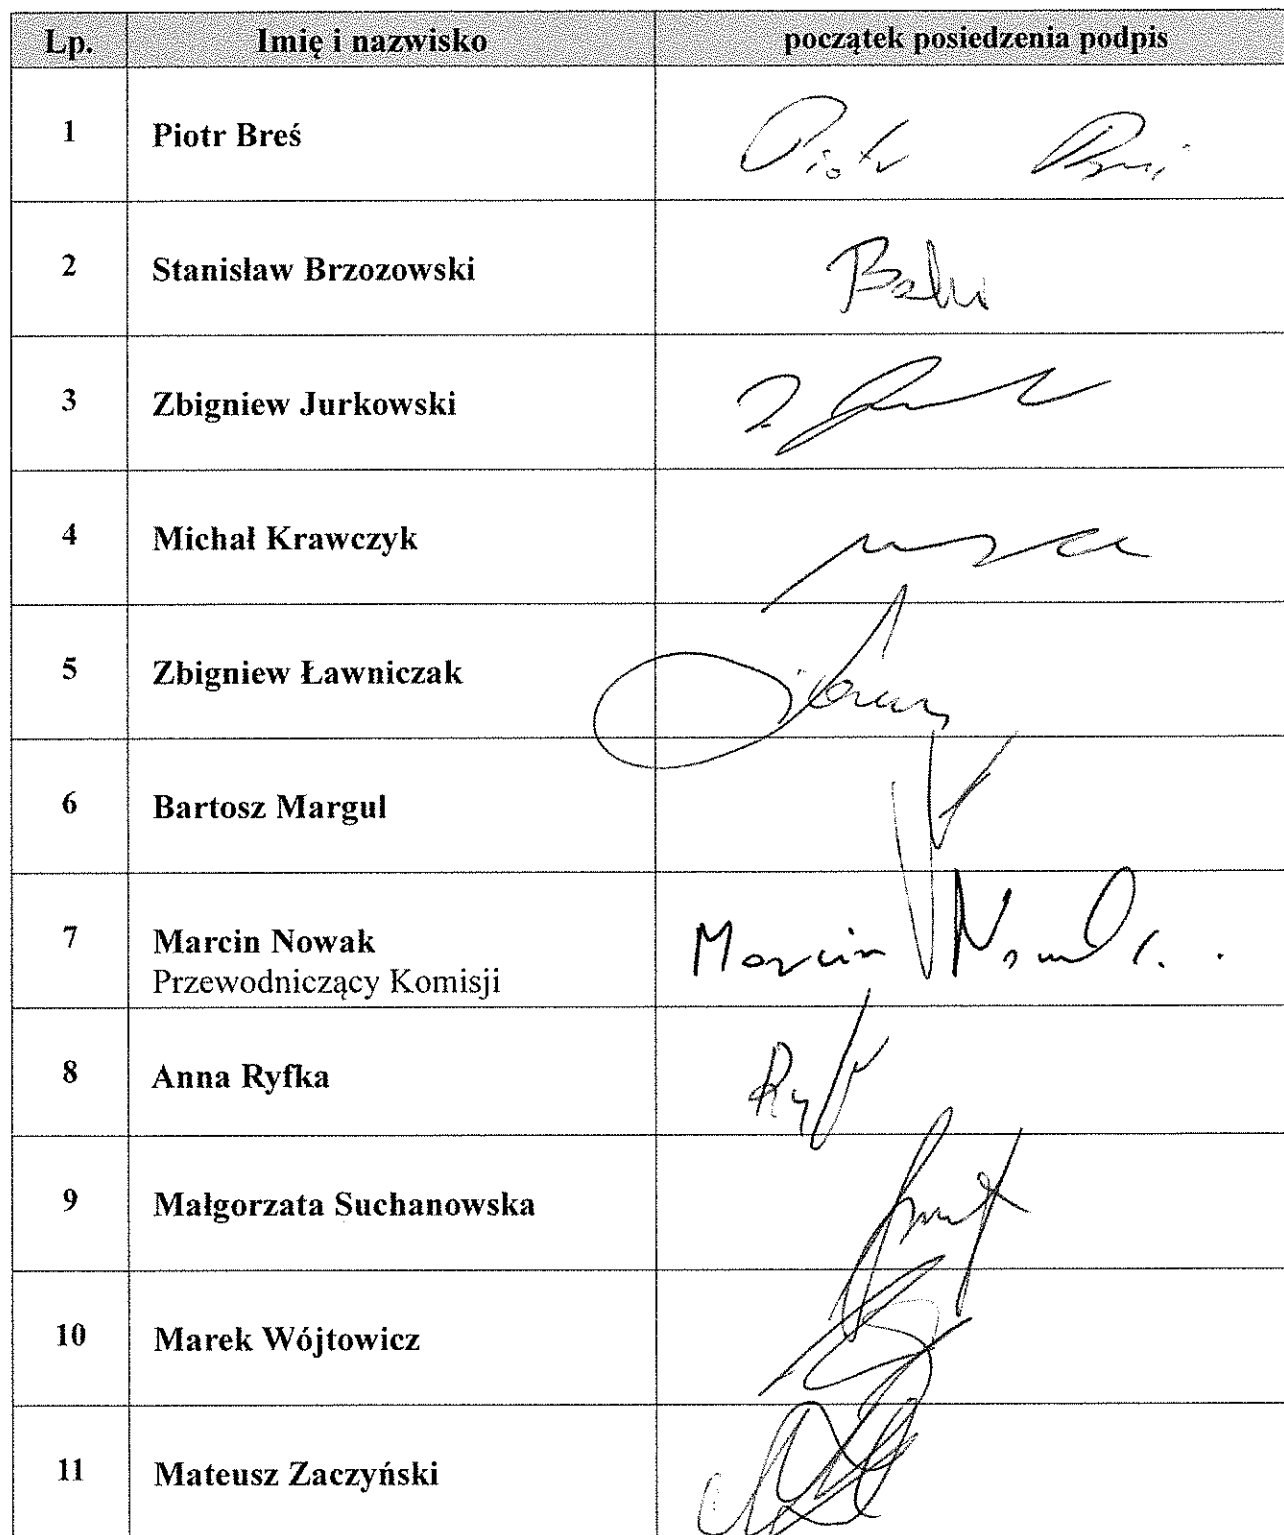 Lp. Imię i nazwisko początek posiedzenia podpis
1 Piotr Breś Piotr Breś
2 Stanisław Brzozowski
3 Zbigniew Jurkowski
4 Michał Krawczyk
5 Zbigniew Ławniczak
6 Bartosz Margul
7 Marcin Nowak Marcin Nowak
Przewodniczący Komisji
8 Anna Ryfka
9 Małgorzata Suchanowska
10 Marek Wójtowicz
11 Mateusz Zaczyński